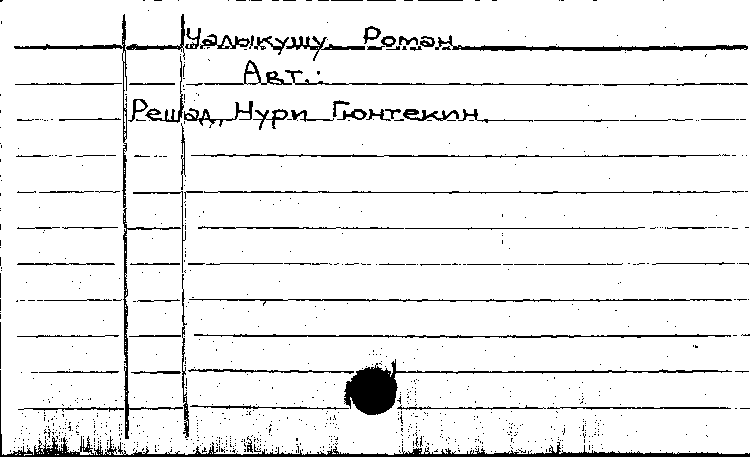 Чалыкушу. Роман.
Авт.:
Решад, Нури Гюнтекин.